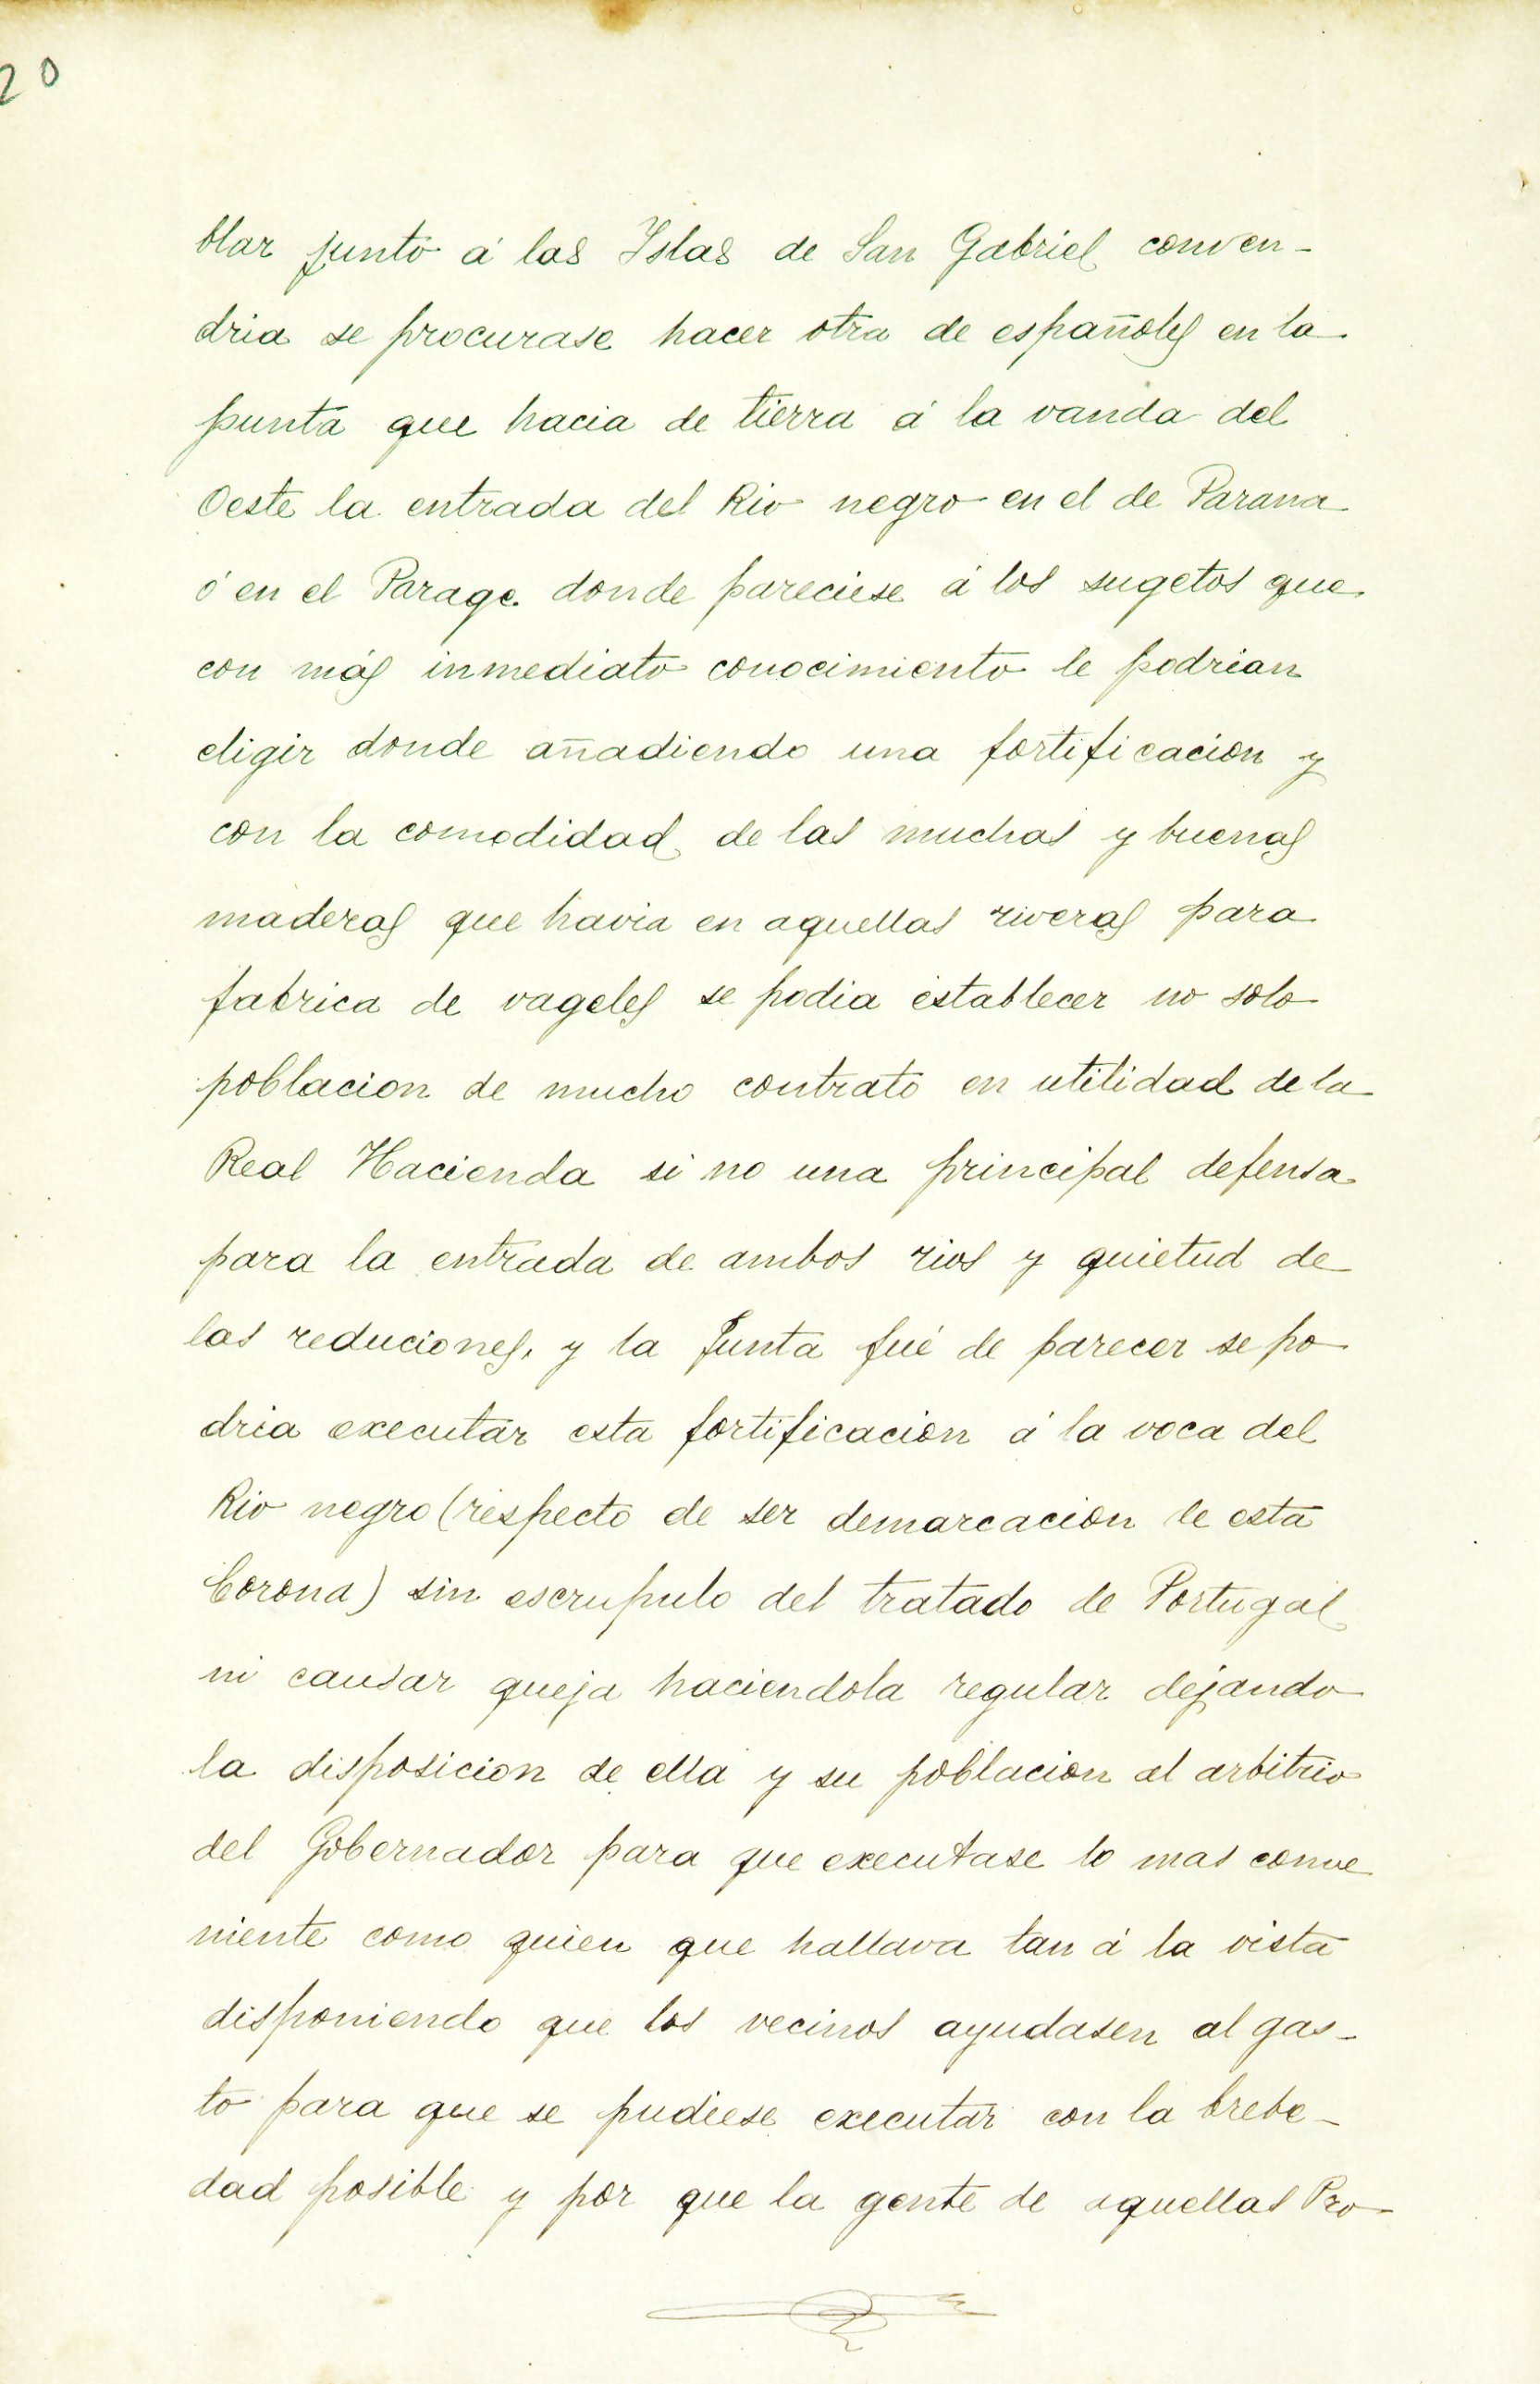 20
blar junto á las Yslas de San Gabriel conven-
dria se procurase hacer otra de españoles en la
punta que hacia de tierra á la vanda del
Oeste la entrada del Rio negro en el de Parana
ó en el Parage donde pareciese á los sugetos que
con más inmediato conocimiento le podrian
eligir donde añadiendo una fortificacion y
con la comodidad de las muchas y buenas
maderas que havia en aquellas riveras para
fabrica de vageles se podia establecer no solo
poblacion de mucho contrato en utilidad de la
Real Hacienda si no una principal defensa
para la entrada de ambos rios y quietud de
las reduciones, y la Junta fué de parecer se po
dria executar esta fortificacion á la voca del
Rio negro (respecto de ser demarcacion de esta
Corona) sin escrupulo del tratado de Portugal
ni causar queja haciendola regular dejando
la disposicion de ella y su poblacion al arbitrio
del Gobernador para que executase lo mas conve
niente como quien que hallava tan á la vista
disponiendo que los vecinos ayudasen al gas-
to para que se pudiese executar con la brebe-
dad posible y por que la gente de aquellas Pro-